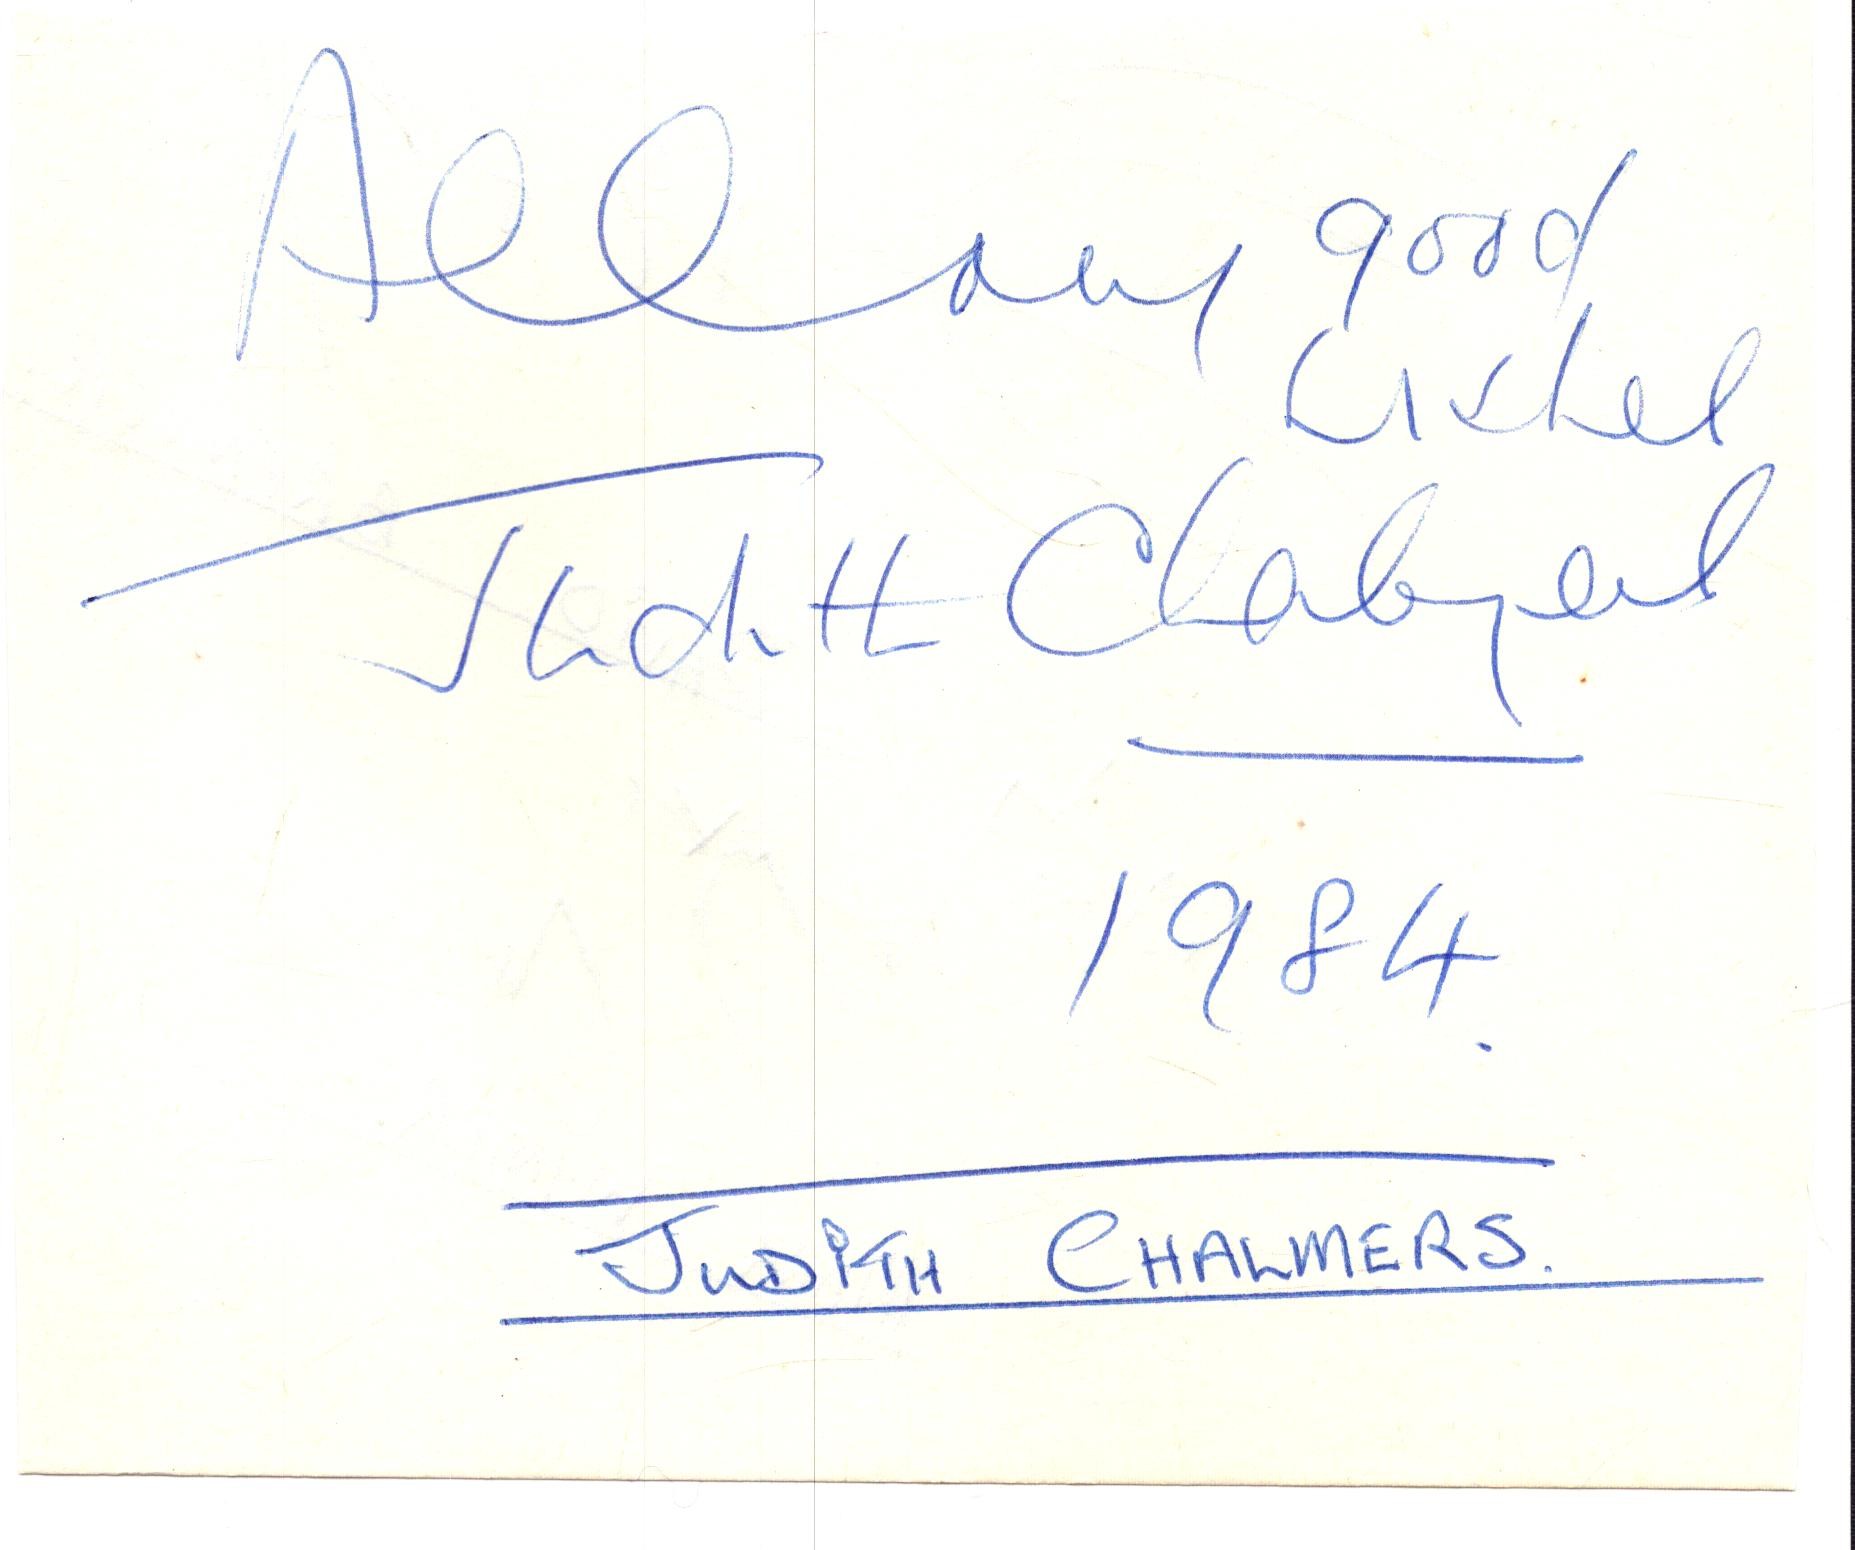 All my good
wishes
Judith Chalmers
1984.
JUDITH CHALMERS.